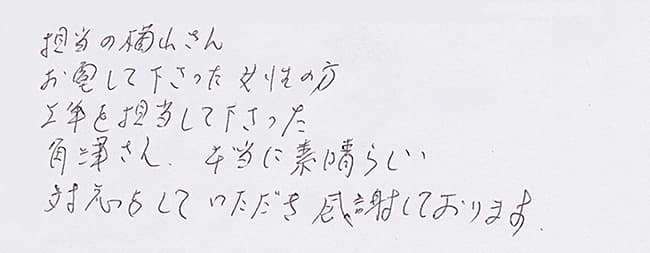 担当の横山さん
お電して下さった女性の方
工事を担当して下さった
角澤さん、本当に素晴らしい
対応をしていただき感謝しております.